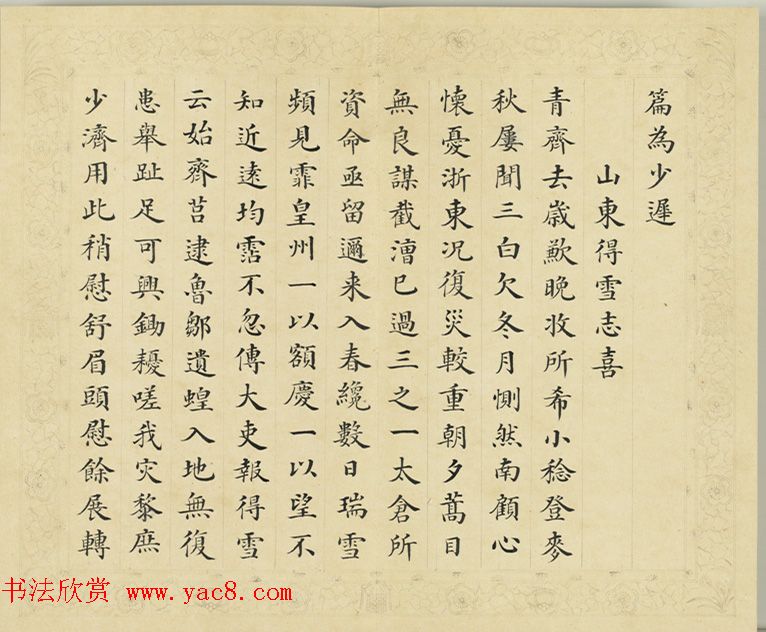 篇為少遲
山東得雪志喜
青齊去歲歉晚收所希小稔登麥
秋屢聞三白欠冬月惻然南顧心
懐憂浙東况復災較重朝夕蒿目
無良謀截漕已過三之一太倉所
資命亟留邇来入春纔數日瑞雪
頻見霏皇州一以額慶一以望不
知近遠均霑不忽傳大吏報得雪
云始齊莒逮魯鄒遺蝗入地無復
患舉趾足可興鋤耰嗟我灾黎庶
少濟用此稍慰舒眉頭慰餘展轉
书法欣赏 www.yac8.com